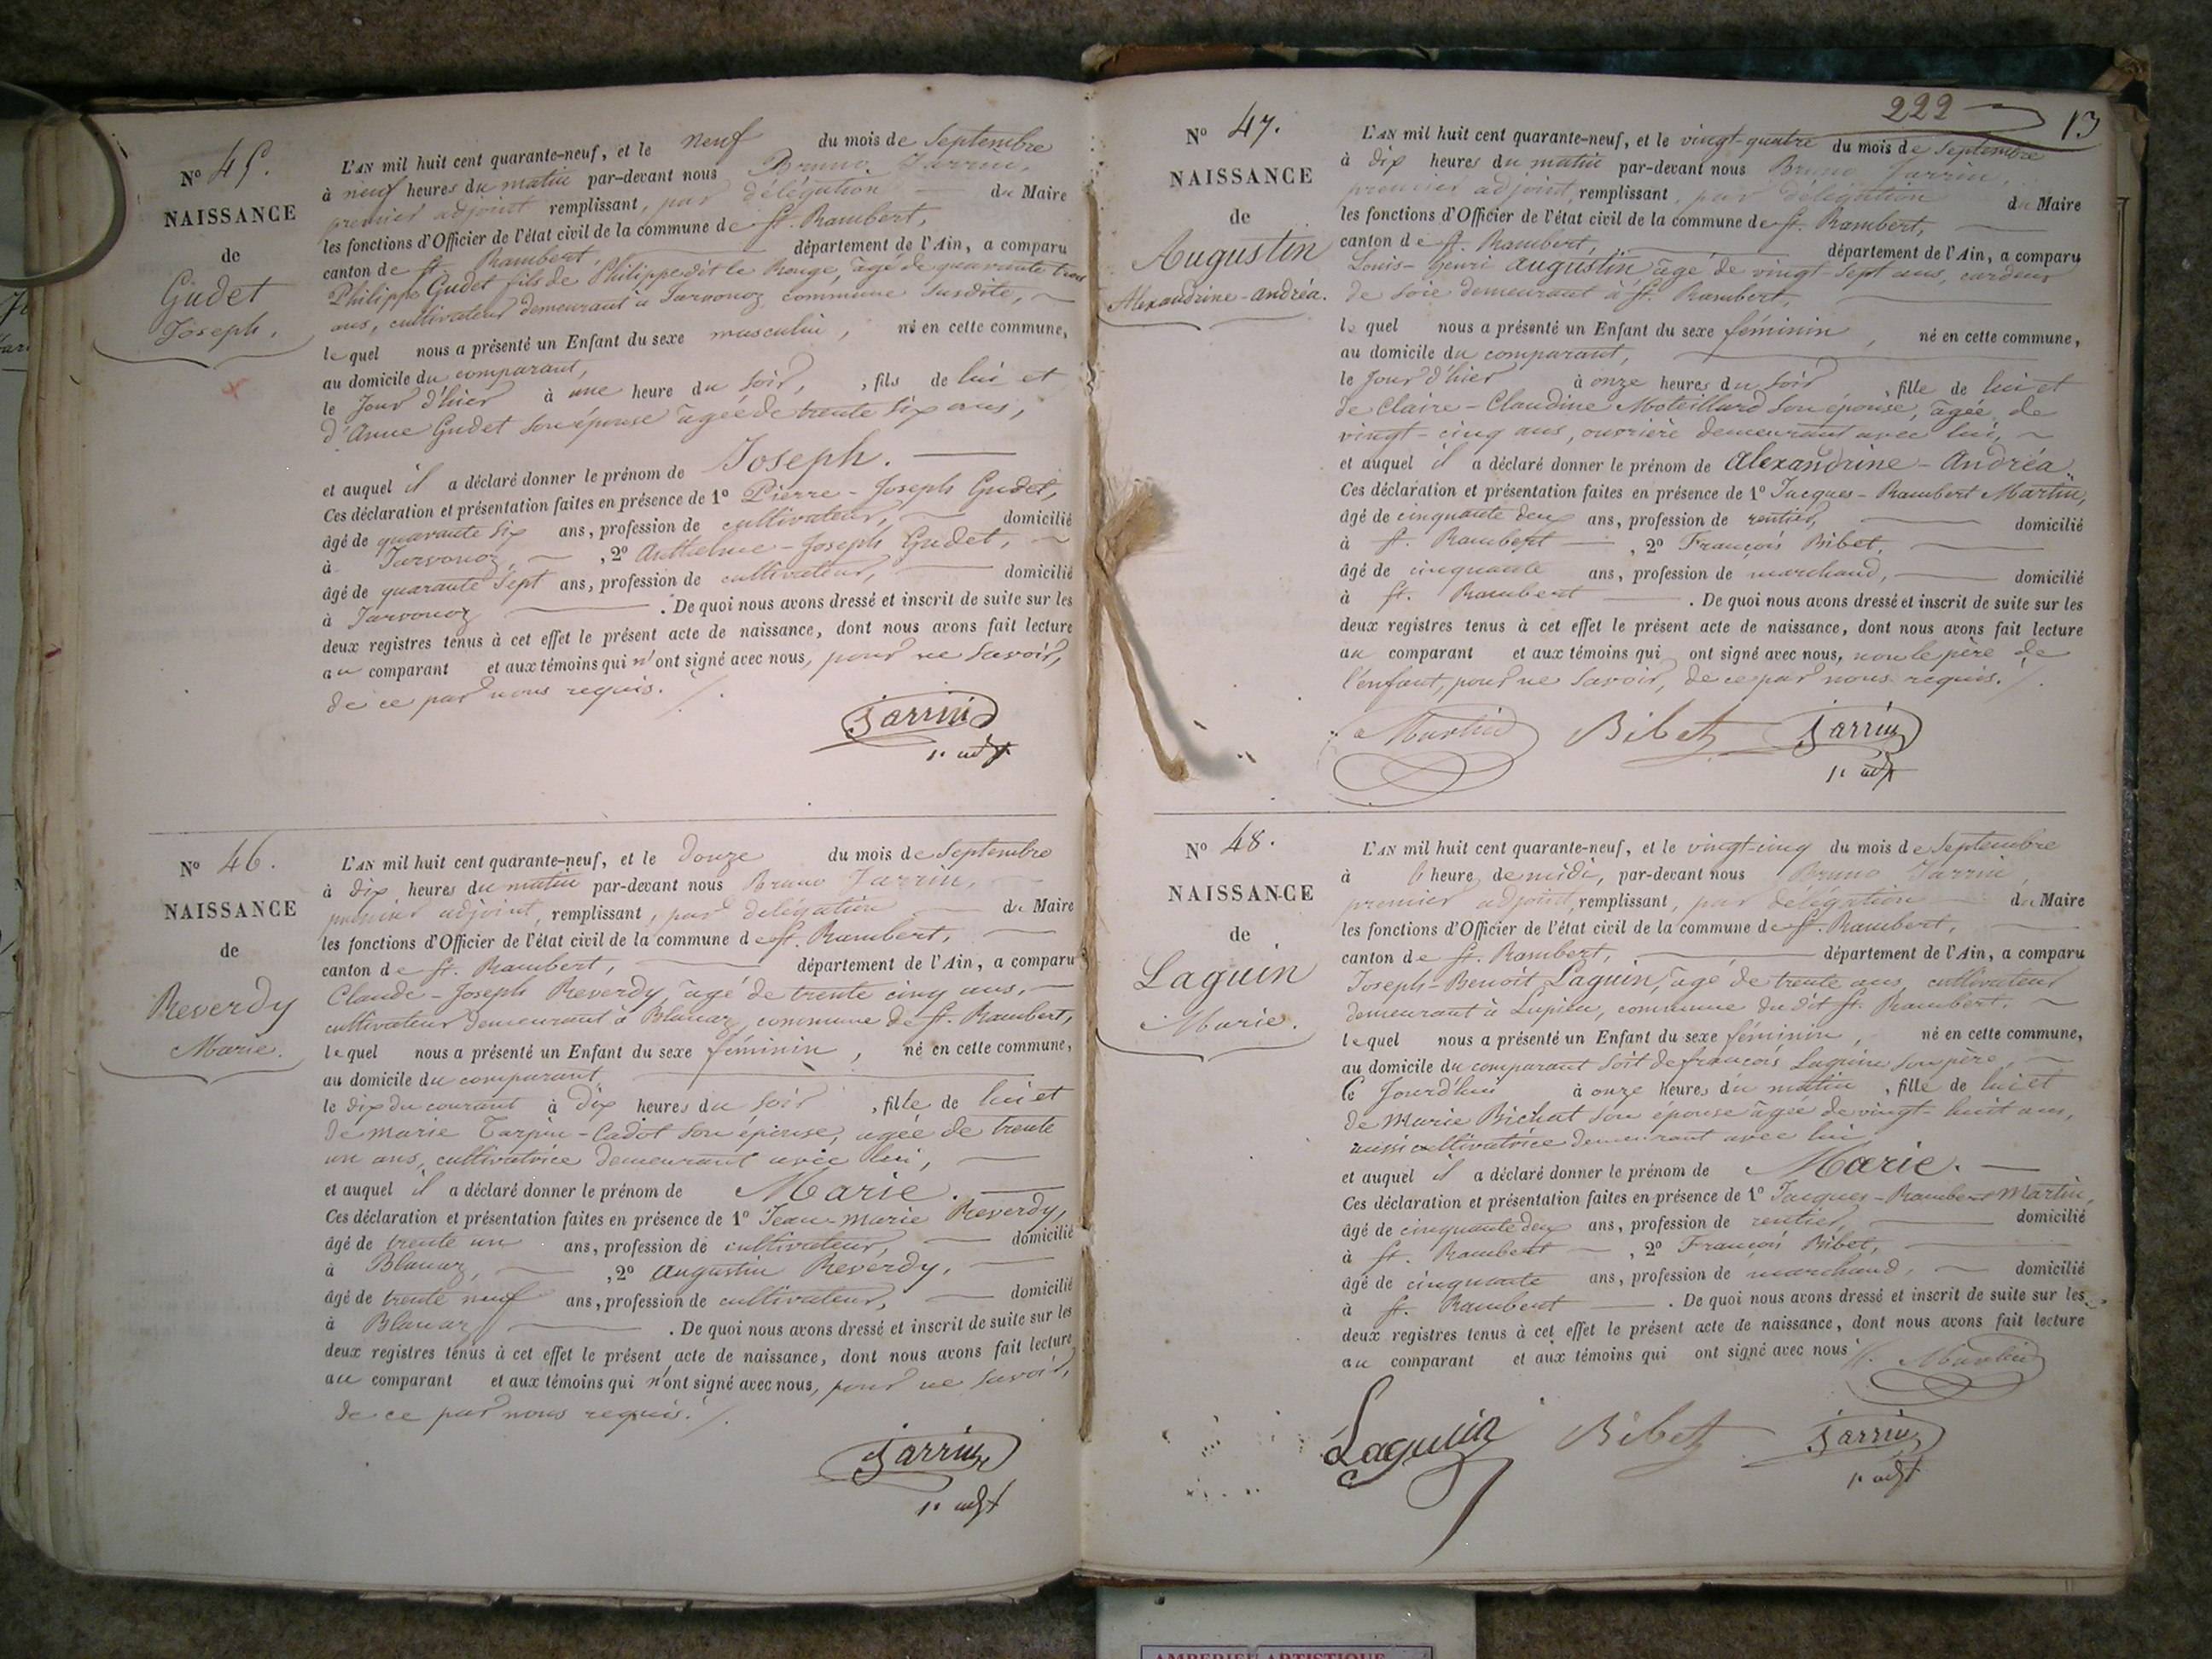 N° 45.
NAISSANCE
de
Gudet
Joseph.
L'AN mil huit cent quarante-neuf, et le neuf du mois de Septembre
à neuf heures du matin par-devant nous Bruno Jarrin,
premier adjoint remplissant, par délégation du Maire
les fonctions d'Officier de l'état civil de la commune de St. Rambert,
canton de St. Rambert, département de l'Ain, a comparu
Philippe Gudet fils de Philippe dit le Rouge, âgé de quarante trois
ans, cultivateur demeurant à Javornoz commune susdite,
lequel nous a présenté un Enfant du sexe masculin, né en cette commune,
au domicile du comparant,
le Jour d'hier à une heure du soir, , fils de lui et
d'Anne Gudet son épouse âgée de trente six ans,
et auquel il a déclaré donner le prénom de Joseph.
Ces déclaration et présentation faites en présence de 1° Pierre-Joseph Gudet,
âgé de quarante six ans, profession de cultivateur, domicilié
à Javornoz, , 2° Anthelme-Joseph Gudet,
âgé de quarante sept ans, profession de cultivateur, domicilié
à Javornoz . De quoi nous avons dressé et inscrit de suite sur les
deux registres tenus à cet effet le présent acte de naissance, dont nous avons fait lecture
au comparant et aux témoins qui n'ont signé avec nous, pour ne savoir,
de ce par nous requis.
Jarrin
1er adjt
N° 46.
NAISSANCE
de
Reverdy
Marie.
L'AN mil huit cent quarante-neuf, et le douze du mois de Septembre
à dix heures du matin par-devant nous Bruno Jarrin,
premier adjoint, remplissant, par délégation du Maire
les fonctions d'Officier de l'état civil de la commune de St. Rambert,
canton de St. Rambert, département de l'Ain, a comparu
Claude-Joseph Reverdy, âgé de trente cinq ans,
cultivateur demeurant à Blanaz, commune de St. Rambert,
lequel nous a présenté un Enfant du sexe féminin, né en cette commune,
au domicile du comparant
le dix du courant à dix heures du soir , fille de lui et
de Marie Tarpin-Cadot son épouse, agée de trente
un ans, cultivatrice demeurant avec lui,
et auquel il a déclaré donner le prénom de Marie.
Ces déclaration et présentation faites en présence de 1° Jean-Marie Reverdy,
âgé de trente un ans, profession de cultivateur, domicilié
à Blanaz, , 2° Augustin Reverdy,
âgé de trente neuf ans, profession de cultivateur, domicilié
à Blanaz . De quoi nous avons dressé et inscrit de suite sur les
deux registres tenus à cet effet le présent acte de naissance, dont nous avons fait lecture
au comparant et aux témoins qui n'ont signé avec nous, pour ne savoir,
de ce par nous requis.
Jarrin
1er adjt
222 13
N° 47.
NAISSANCE
de
Augustin
Alexandrine-Andréa.
L'AN mil huit cent quarante-neuf, et le vingt-quatre du mois de Septembre
à dix heures du matin par-devant nous Bruno Jarrin,
premier adjoint, remplissant, par délégation du Maire
les fonctions d'Officier de l'état civil de la commune de St. Rambert,
canton de St. Rambert, département de l'Ain, a comparu
Louis-Henri Augustin âgé de vingt sept ans, cardeur
de soie demeurant à St. Rambert,
lequel nous a présenté un Enfant du sexe féminin, né en cette commune,
au domicile du comparant,
le Jour d'hier à onze heures du soir , fille de lui et
de Claire-Claudine Moteillard son épouse, âgée de
vingt-cinq ans, ouvrière demeurant avec lui,
et auquel il a déclaré donner le prénom de Alexandrine-Andréa.
Ces déclaration et présentation faites en présence de 1° Jacques-Rambert Martin,
âgé de cinquante deux ans, profession de rentier, domicilié
à St. Rambert , 2° François Bibet,
âgé de cinquante ans, profession de marchand, domicilié
à St. Rambert . De quoi nous avons dressé et inscrit de suite sur les
deux registres tenus à cet effet le présent acte de naissance, dont nous avons fait lecture
au comparant et aux témoins qui ont signé avec nous, non le père de
l'enfant, pour ne savoir, de ce par nous requis.
Martin Bibet Jarrin
1er adjt
N° 48.
NAISSANCE
de
Laguin
Marie.
L'AN mil huit cent quarante-neuf, et le vingt-cinq du mois de Septembre
à heure de midi, par-devant nous Bruno Jarrin,
premier adjoint, remplissant, par délégation du Maire
les fonctions d'Officier de l'état civil de la commune de St. Rambert,
canton de St. Rambert, département de l'Ain, a comparu
Joseph-Benoit Laguin, âgé de trente ans, cultivateur
demeurant à Lupieu, commune du dit St. Rambert.
lequel nous a présenté un Enfant du sexe féminin, né en cette commune,
au domicile du comparant soit de françois Laguin son père,
ce Jourd'hui à onze heures du matin , fille de lui et
de Marie Bichat son épouse âgée de vingt-huit ans,
aussi cultivatrice demeurant avec lui
et auquel il a déclaré donner le prénom de Marie.
Ces déclaration et présentation faites en présence de 1° Jacques-Rambert Martin,
âgé de cinquante deux ans, profession de rentier, domicilié
à St. Rambert , 2° François Bibet,
âgé de cinquante ans, profession de marchand, domicilié
à St. Rambert . De quoi nous avons dressé et inscrit de suite sur les
deux registres tenus à cet effet le présent acte de naissance, dont nous avons fait lecture
au comparant et aux témoins qui ont signé avec nous
Martin
Laguin Bibet Jarrin
1er adjt
AMBERIEU ARTISTIQUE